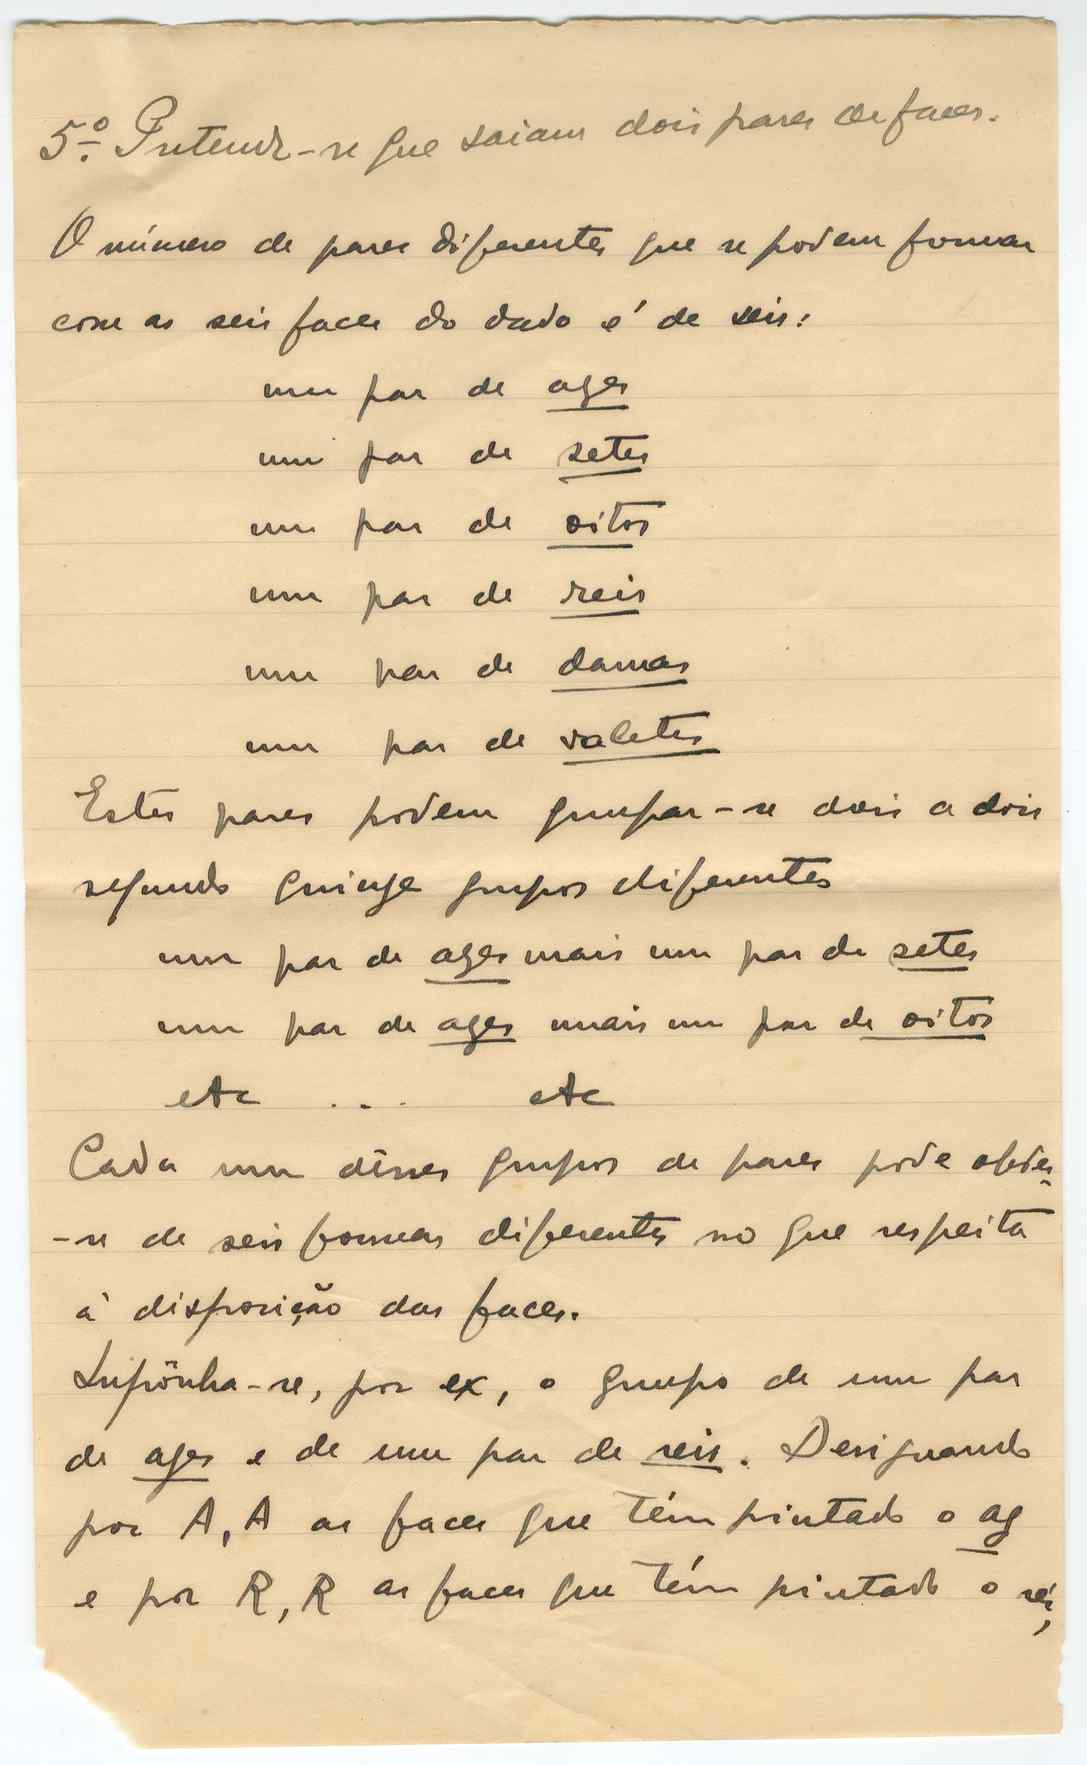 5º. Pretende-se que saiam dois pares de faces.
O número de pares diferentes que se podem formar
com as seis faces do dado é de seis:
um par de azes
um par de setes
um par de oitos
um par de reis
um par de damas
um par de valetes
Estes pares podem grupar-se dois a dois
segundo quinze grupos diferentes
um par de azes mais um par de setes
um par de azes mais um par de oitos
etc ... etc
Cada um dêsses grupos de pares pode obter-
-se de seis formas diferentes no que respeita
à disposição das faces.
Suponha-se, por ex, o grupo de um par
de azes e de um par de reis. Designando
por A, A as faces que têm pintado o az
e por R, R as faces que têm pintado o rei,